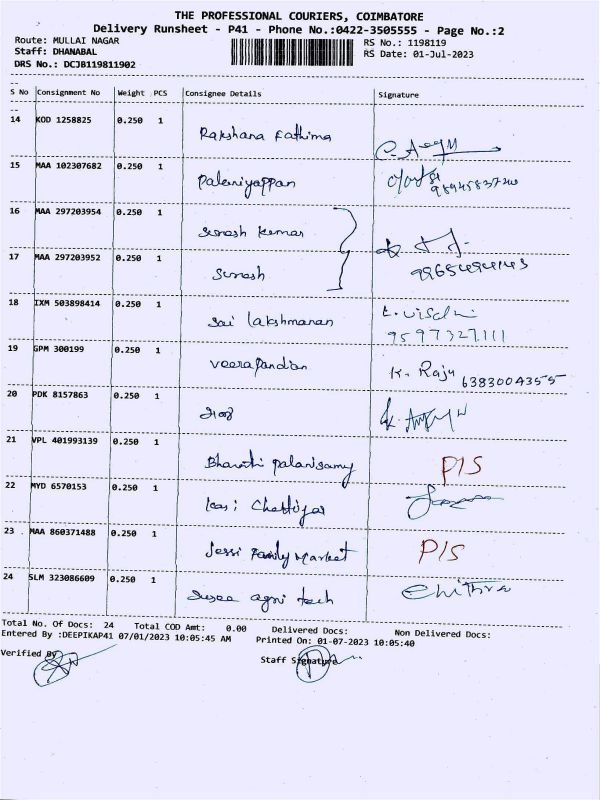 THE PROFESSIONAL COURIERS, COIMBATORE
Delivery Runsheet - P41 - Phone No.:0422-3505555 - Page No.:2
Route: MULLAI NAGAR
Staff: DHANABAL
DRS No.: DCJB119811902
RS No.: 1198119
RS Date: 01-Jul-2023
S No Consignment No Weight PCS Consignee Details Signature
14 KOD 1258825 0.250 1 Rakshana Fathima
15 MAA 102307682 0.250 1 Palaniyappan
16 MAA 297203954 0.250 1 Suresh Kumar
17 MAA 297203952 0.250 1 Suresh
18 IXM 503898414 0.250 1 Sai Lakshmanan
9597327111
19 GPM 300199 0.250 1 Veerapandian K. Raju 6383004355
20 PDK 8157863 0.250 1
21 VPL 401993139 0.250 1 Bharathi Palanisamy P/S
22 MYD 6570153 0.250 1 Kasi Chettiyar
23 . MAA 860371488 0.250 1 Jessi Family Market P/S
24 SLM 323086609 0.250 1 agri tech Chithra
Total No. Of Docs: 24 Total COD Amt: 0.00 Delivered Docs: Non Delivered Docs:
Entered By :DEEPIKAP41 07/01/2023 10:05:45 AM Printed On: 01-07-2023 10:05:40
Verified By Staff Signature